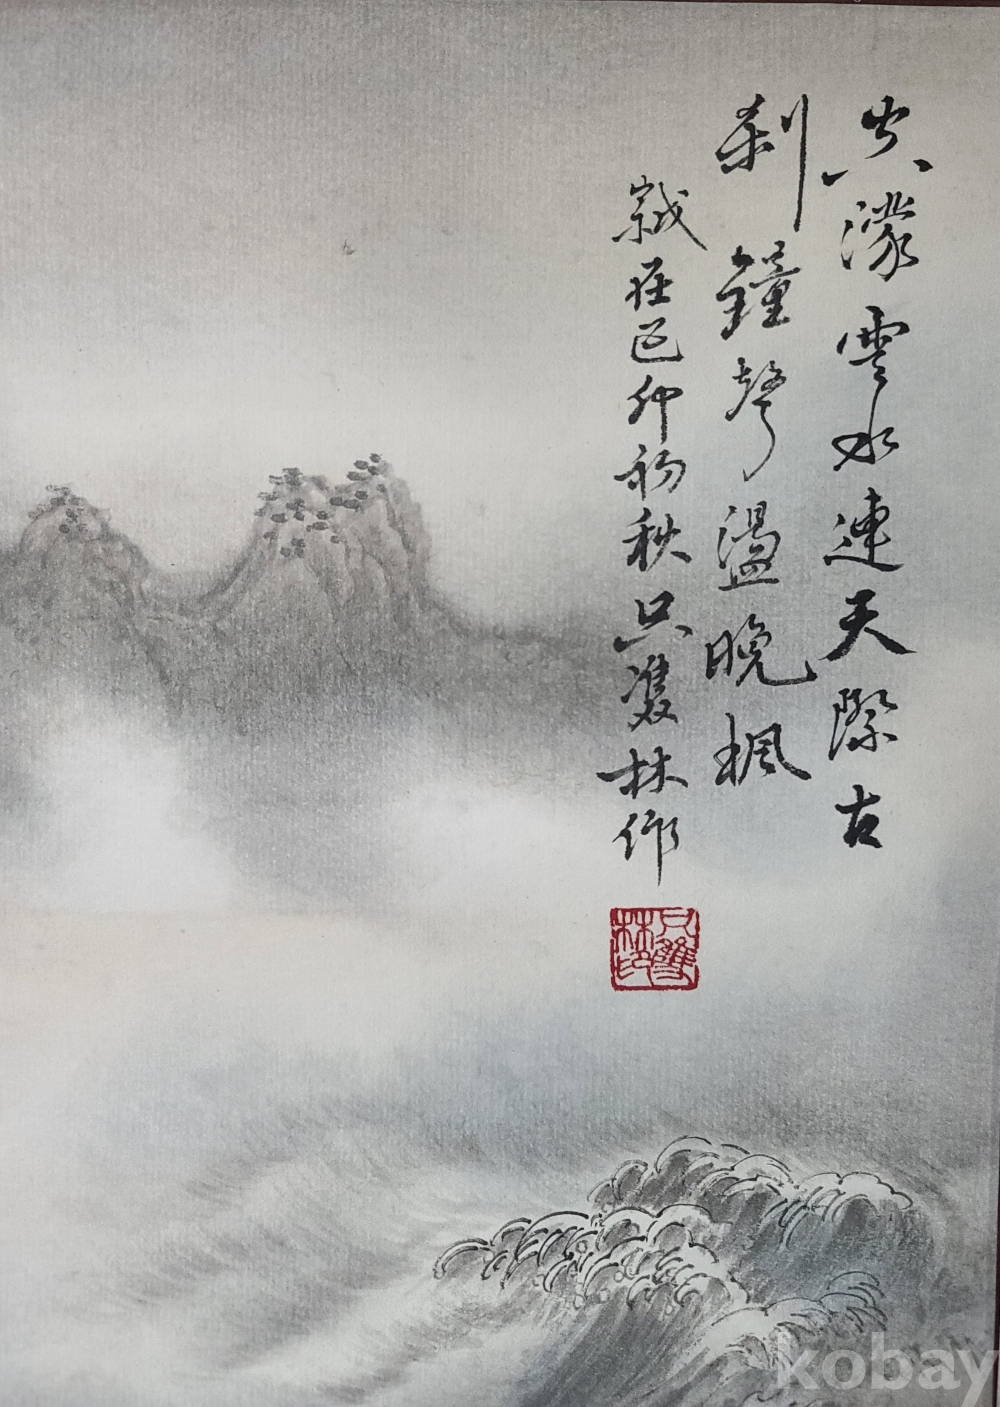 濛雲水連天際古
刹鐘聲盪晚楓
歲在己卯初秋只雙林作
只雙林印
kobay